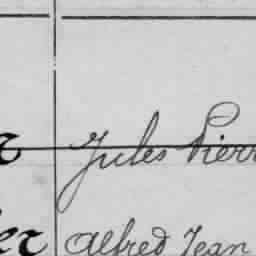 r Jules Pierr
er Alfred Jean